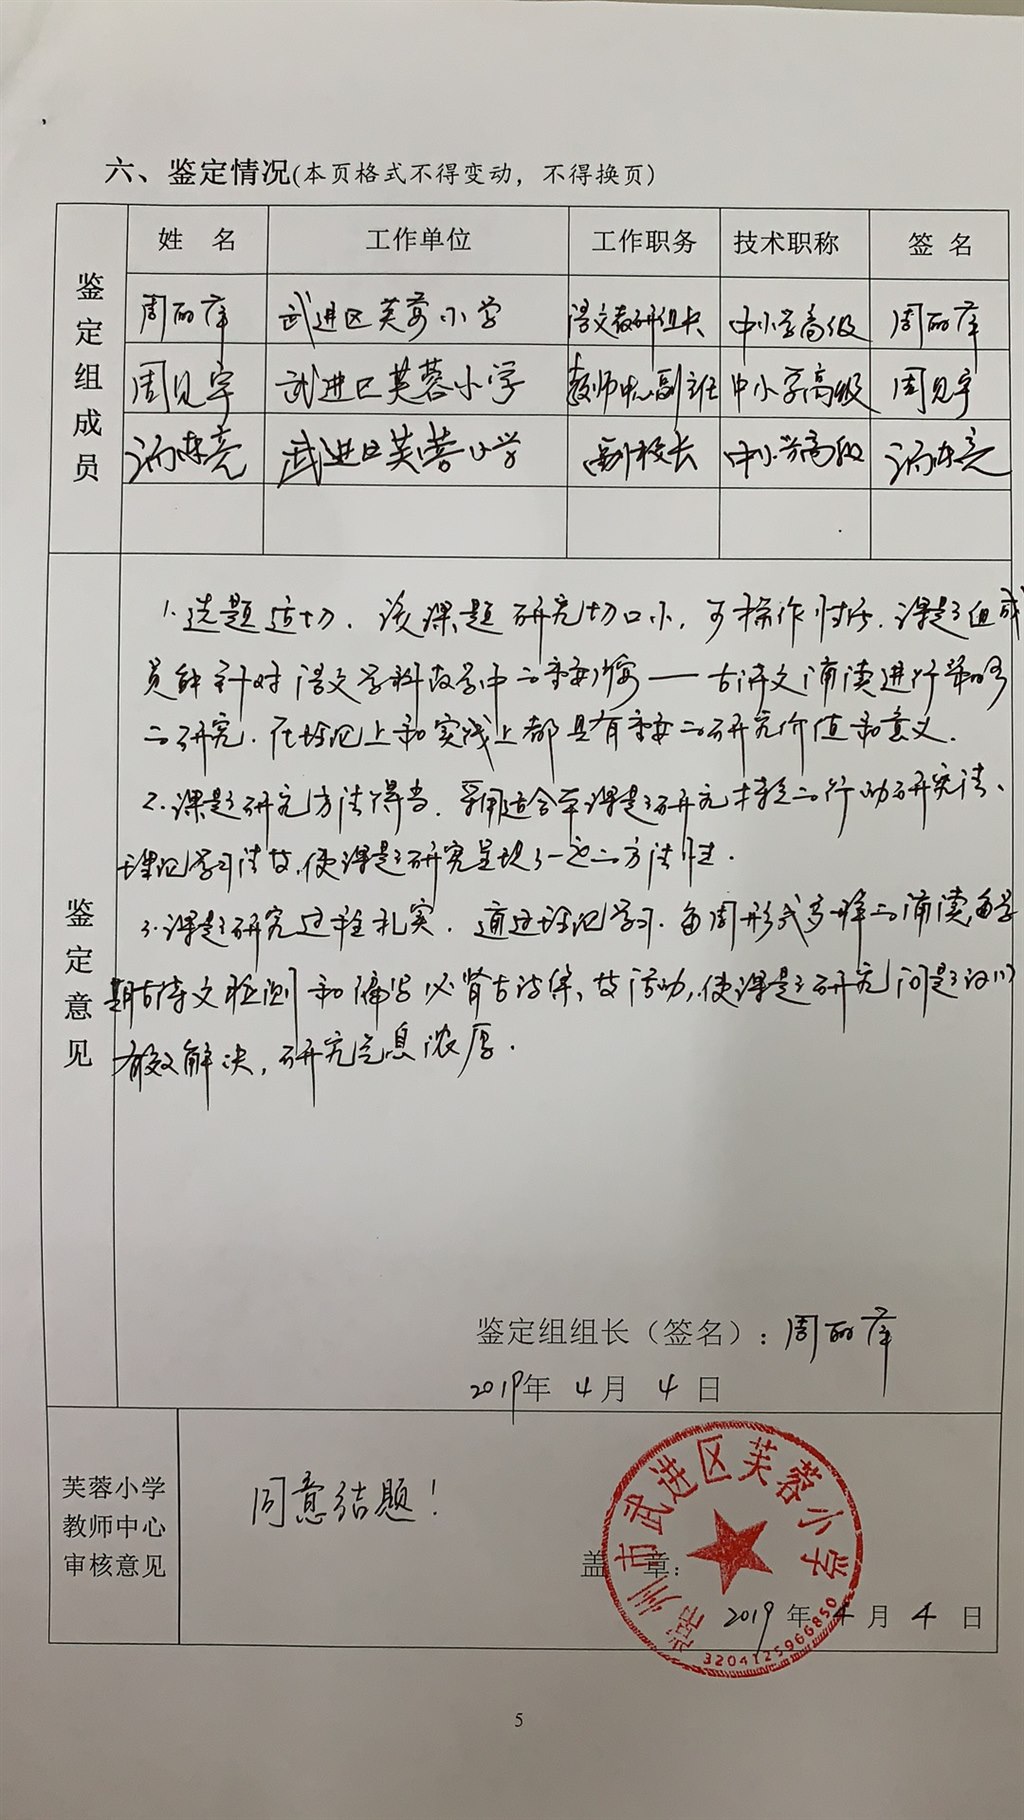 六、鉴定情况(本页格式不得变动，不得换页)
鉴定组成员
姓 名 工作单位 工作职务 技术职称 签 名
周丽萍 武进区芙蓉小学 语文教研组长 中小学高级 周丽萍
周见宇 武进区芙蓉小学 教师中心副主任 中小学高级 周见宇
武进区芙蓉小学 副校长 中小学高级
鉴定意见
1.选题适切，该课题研究切口小，可操作性强，课题组成
员能针对语文学科教学中的重要内容——古诗文诵读进行策略
的研究，在理论上和实践上都具有重要的研究价值和意义。
2.课题研究方法得当，采用适合本课题研究持程的行动研究法、
理论学习法等，使课题研究呈现了一定的方法性。
3.课题研究过程扎实，通过理论学习，每周形式多样的诵读，每学
期古诗文检测和编写必背古诗集，等活动，使课题研究问题得以
有效解决，研究气息浓厚。
鉴定组组长（签名）：周丽萍
2019年 4月 4日
芙蓉小学
教师中心
审核意见
同意结题！
盖 章：
常州市武进区芙蓉小学
2019年4月4日
3204125966850
5